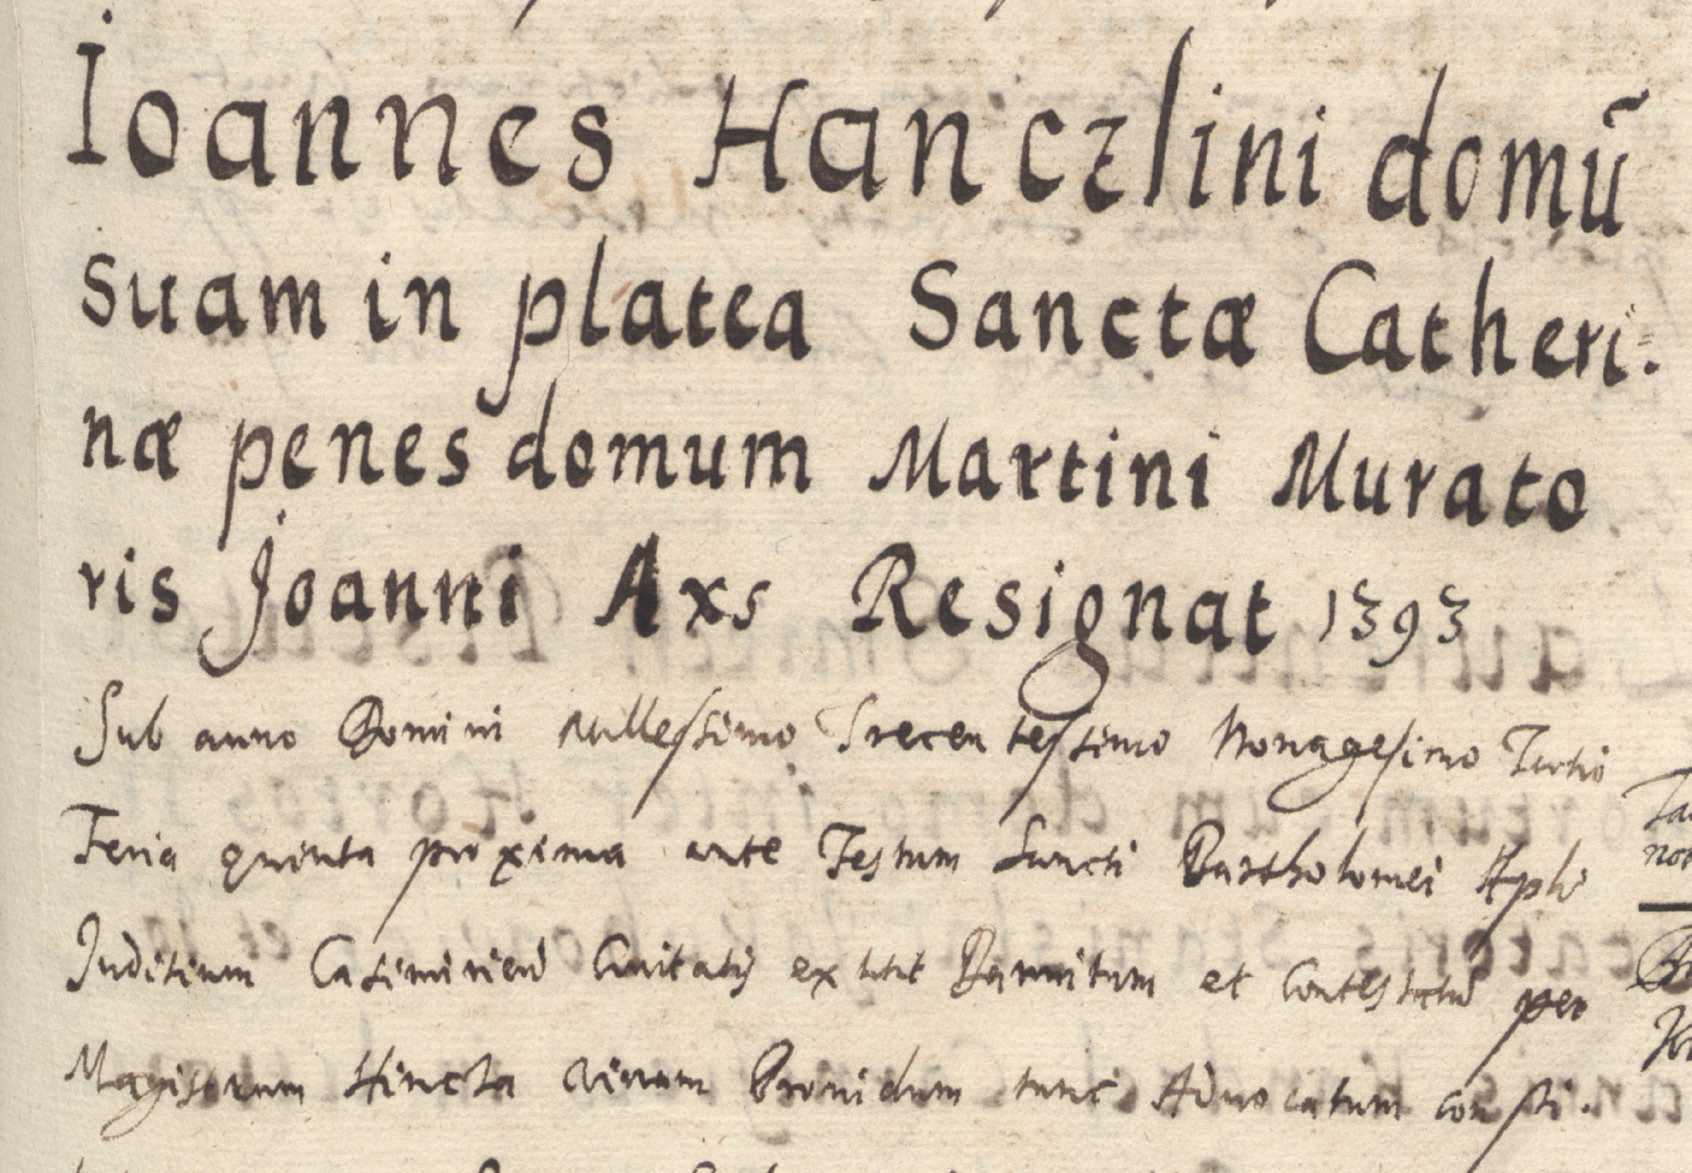 Ioannes Hanczlini domũ
suam in platea Sanctæ Catheri-
næ penes domum Martini Murato
ris Joanni Axs Resignat 1393
Sub anno Domini Millessimo Trecentessimo Nonagesimo Tertio
Feria quinta proxima ante Festum Sancti Bartholomei Apli
Juditium Casimirien Civitatis extitit Bannitum et Contestatũ per
Magistrum Hinczka virum Providum tunc Advocatum consti-